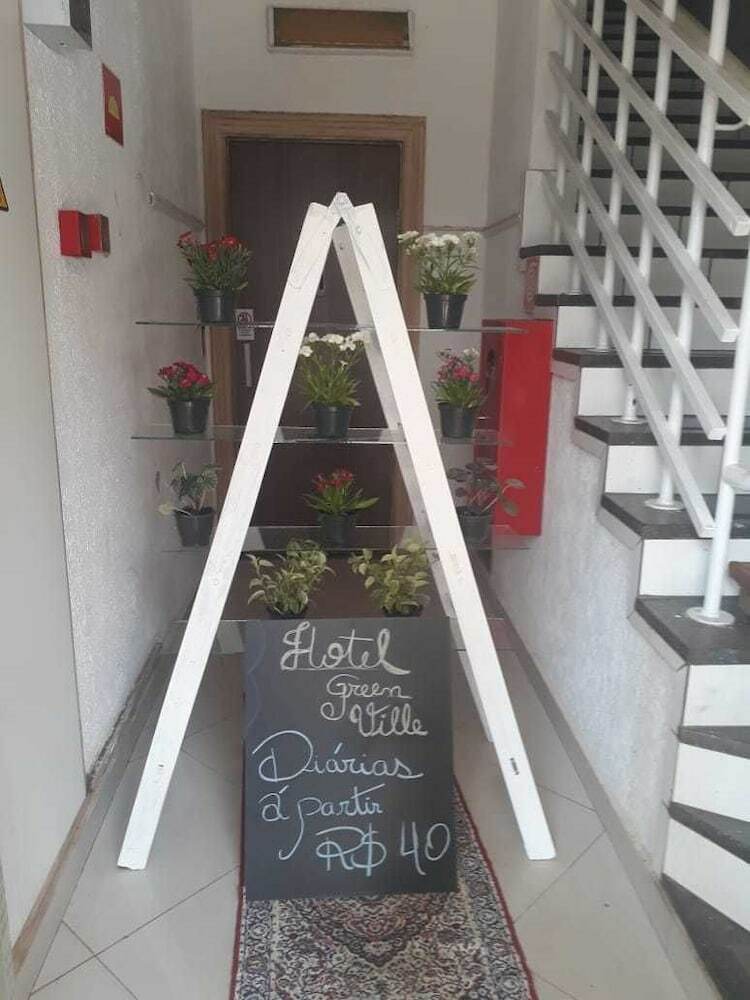 Hotel
Green
Ville
Diárias
á partir
R$ 40